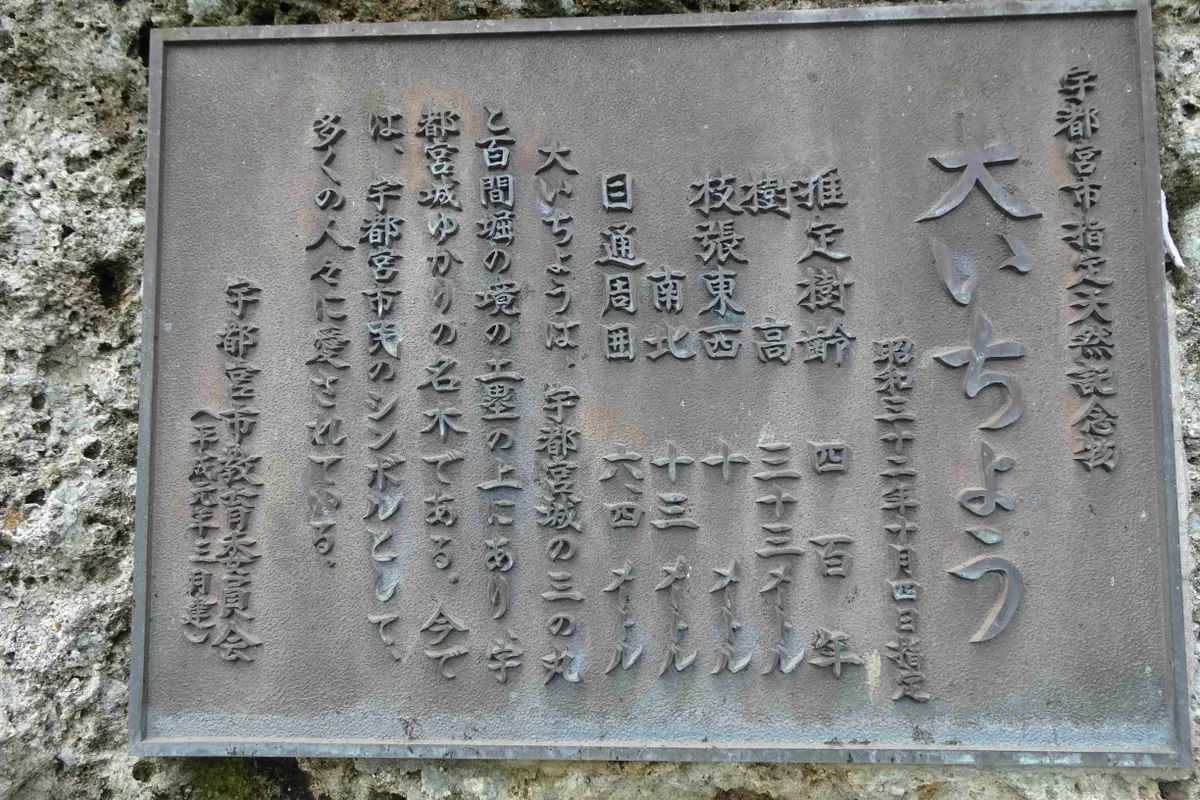 宇都宮市指定天然記念物
大いちょう
昭和三十二年十月四日指定
推定樹齢 四百年
樹高 三十三メートル
枝張東西 十メートル
南北 十三メートル
目通周囲 六・四メートル
大いちょうは、宇都宮城の三の丸
と百間堀の境の土塁の上にあり宇
都宮城ゆかりの名木である。今で
は、宇都宮市民のシンボルとして、
多くの人々に愛されている。
宇都宮市教育委員会
(平成元年三月建)